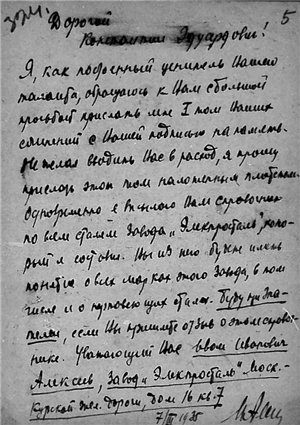 324. 5
Дорогой
Константин Эдуардович!
Я, как подлинный ценитель Вашего
таланта, обращаюсь к Вам с большой
просьбой прислать мне I том Ваших
сочинений с Вашей подписью на память.
Не желая вводить Вас в расход, я прошу
прислать этот том наложенным платежом.
Одновременно я выслал Вам справочник
по всем сталям завода „Электросталь", кото-
рый я составил. Вы из него будете иметь
понятие о всех марках этого завода, в том
числе и о нержавеющих сталях. Буду призна-
телен, если Вы пришлете отзыв о этом справоч-
нике. Уважающий Вас Иван Иванович
Алексеев, завод „Электросталь" Моск.-
Курской жел. дороги, дом 16 кв. 7
7/III 1935